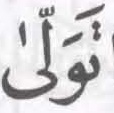 تَوَلّٰى